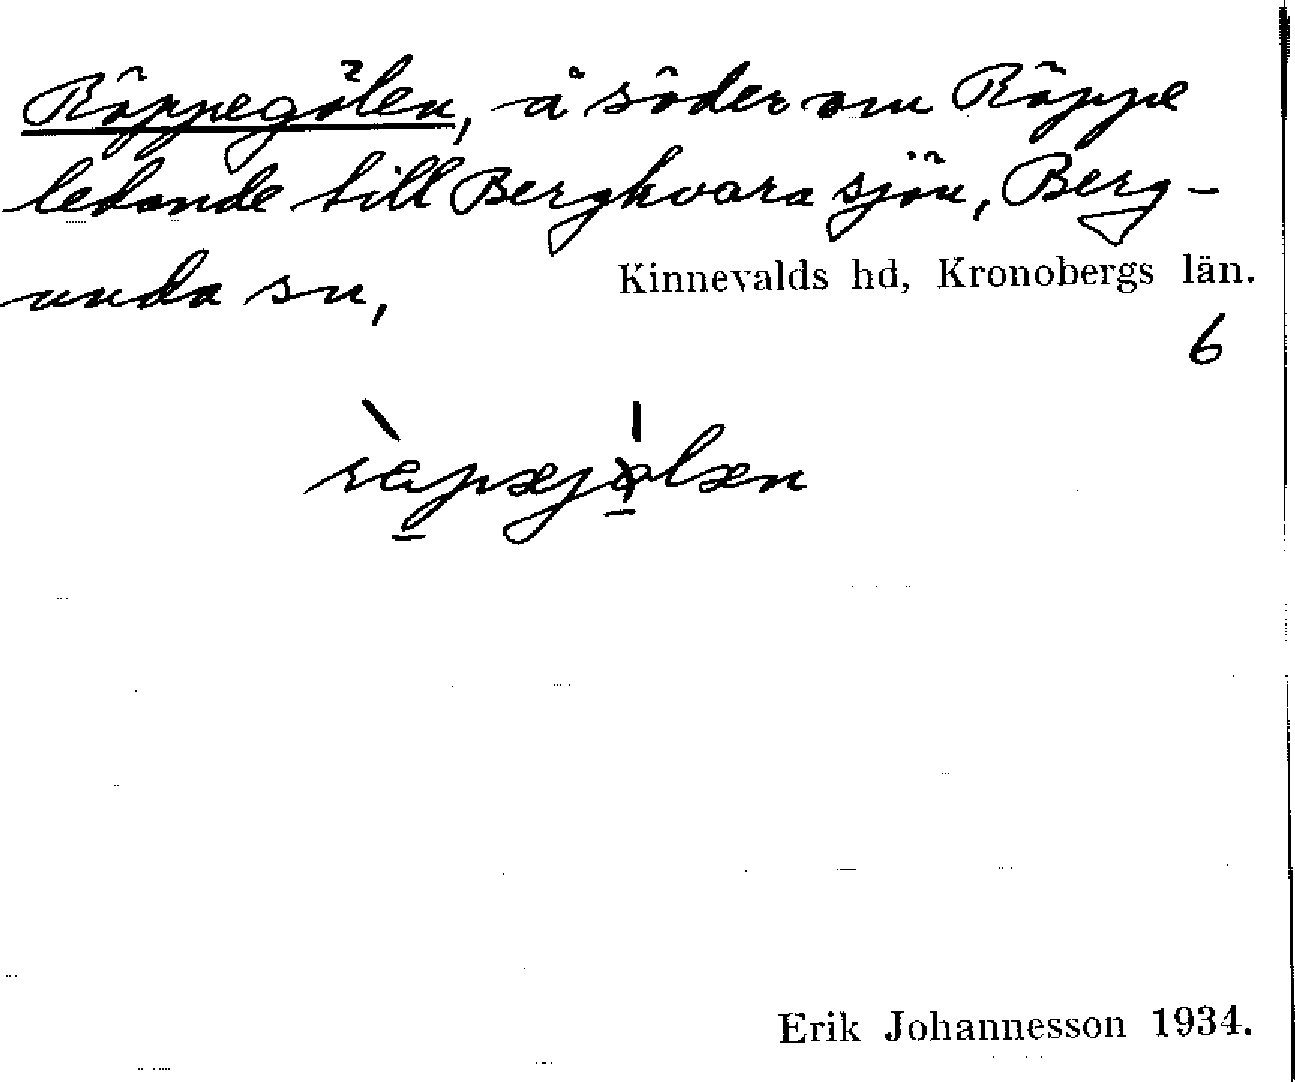 Röppegölen, å söder om Röppe
ledande till Bergkvara sjön, Berg-
unda sn,
Kinnevalds hd, Kronobergs län.
6
Erik Johannesson 1934.